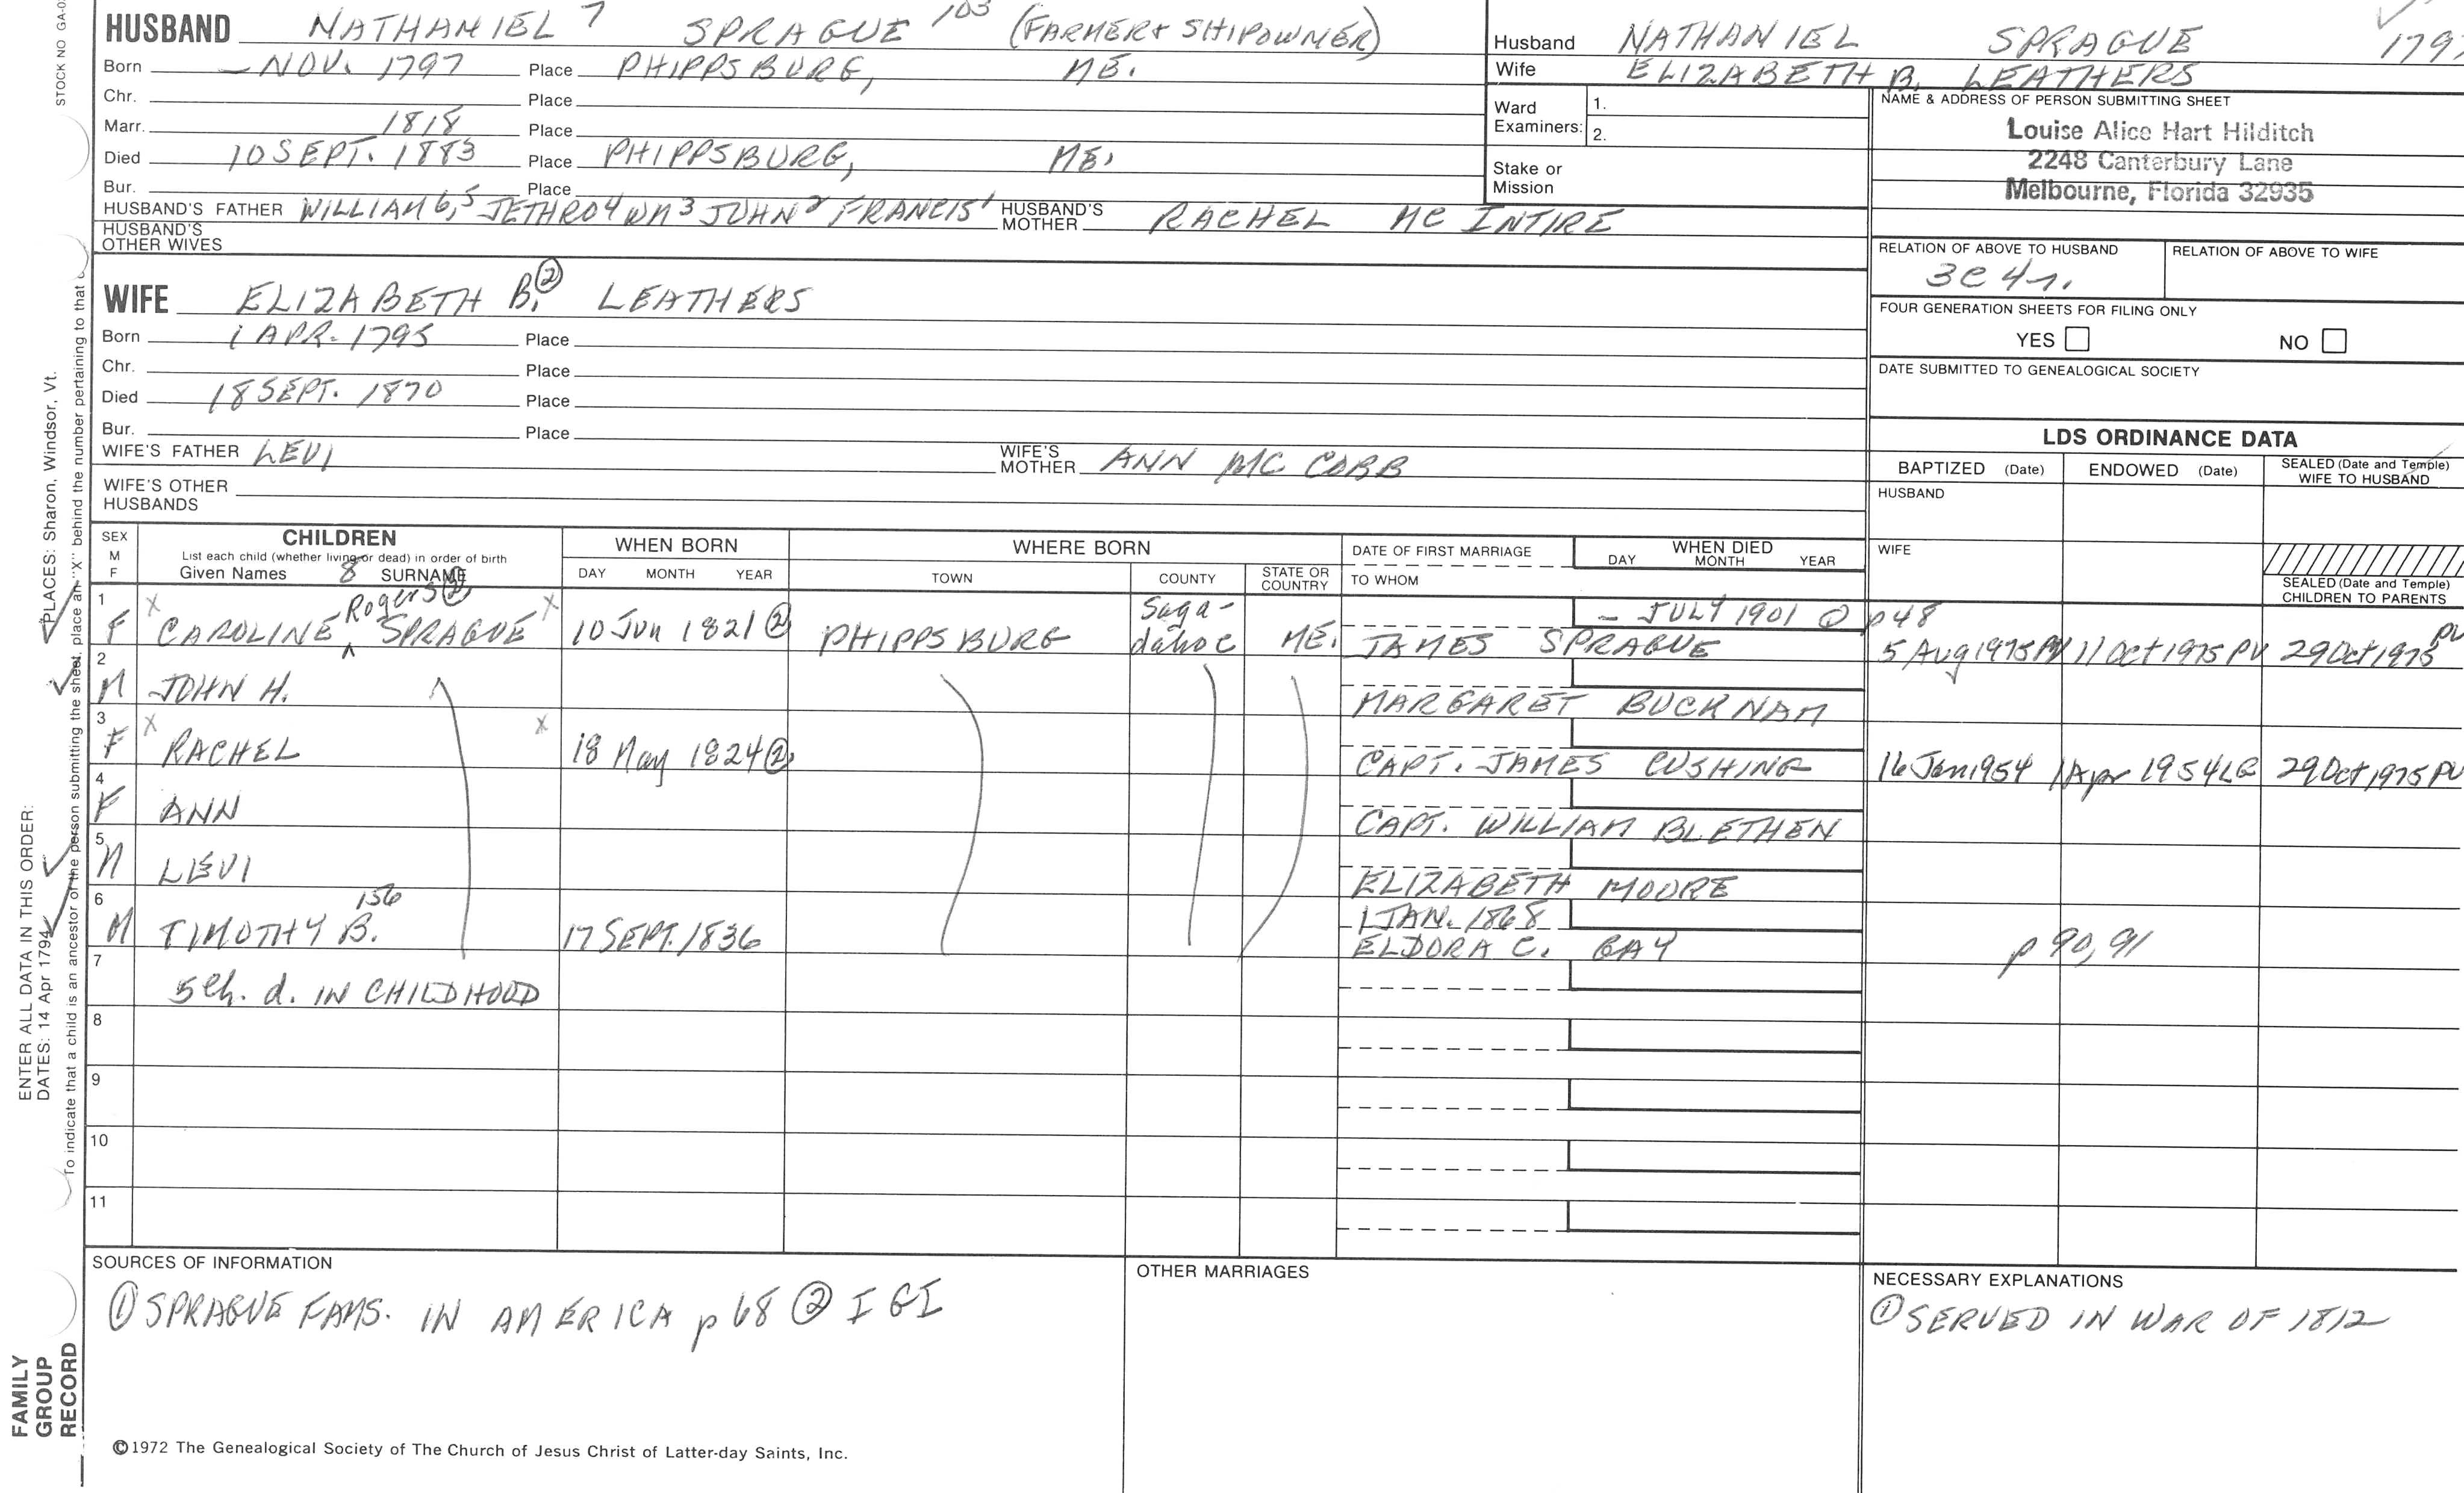 STOCK NO GA-0
HUSBAND NATHANIEL 7 SPRAGUE 103 (FARMER + SHIPOWNER)
Born — NOV. 1797 Place PHIPPSBURG, ME.
Chr. Place
Marr. 1818 Place
Died 10 SEPT. 1883 Place PHIPPSBURG, ME.
Bur. Place
HUSBAND'S FATHER WILLIAM 6,5 JETHRO 4 WM 3 JOHN 2 FRANCIS 1 HUSBAND'S MOTHER RACHEL MC INTIRE
HUSBAND'S OTHER WIVES
Husband NATHANIEL SPRAGUE 1797
Wife ELIZABETH B. LEATHERS
Ward Examiners: 1.
2.
Stake or Mission
NAME & ADDRESS OF PERSON SUBMITTING SHEET
Louise Alice Hart Hilditch
2248 Canterbury Lane
Melbourne, Florida 32935
RELATION OF ABOVE TO HUSBAND RELATION OF ABOVE TO WIFE
3C 4r.
FOUR GENERATION SHEETS FOR FILING ONLY
YES NO
DATE SUBMITTED TO GENEALOGICAL SOCIETY
WIFE ELIZABETH B. ② LEATHERS
Born 1 APR. 1795 Place
Chr. Place
Died 18 SEPT. 1870 Place
Bur. Place
WIFE'S FATHER LEVI WIFE'S MOTHER ANN MC COBB
WIFE'S OTHER HUSBANDS
LDS ORDINANCE DATA
BAPTIZED (Date) ENDOWED (Date) SEALED (Date and Temple) WIFE TO HUSBAND
HUSBAND
WIFE
SEALED (Date and Temple) CHILDREN TO PARENTS
SEX M F CHILDREN List each child (whether living or dead) in order of birth Given Names 8 SURNAME
WHEN BORN DAY MONTH YEAR
WHERE BORN TOWN COUNTY STATE OR COUNTRY
DATE OF FIRST MARRIAGE TO WHOM
WHEN DIED DAY MONTH YEAR
1 F X CAROLINE Rogers ② SPRAGUE X 10 Jun 1821 ② PHIPPSBURG Sagadahoc ME. JAMES SPRAGUE — JULY 1901 p48 5 Aug 1975 PV 11 Oct 1975 PV 29 Oct 1975 PV
2 M JOHN H. MARGARET BUCKNAM
3 F X RACHEL X 18 May 1824 ② CAPT. JAMES CUSHING 16 Jan 1954 1 Apr 1954 LG 29 Oct 1975 PV
4 F ANN CAPT. WILLIAM BLETHEN
5 M LEVI ELIZABETH MOORE
6 M TIMOTHY B. 156 17 SEPT. 1836 1 JAN. 1868 ELDORA C. GAY p 90, 91
7 5 ch. d. IN CHILDHOOD
8
9
10
11
SOURCES OF INFORMATION
① SPRAGUE FAMS. IN AMERICA p 68 ② IGI
OTHER MARRIAGES
NECESSARY EXPLANATIONS
① SERVED IN WAR OF 1812
©1972 The Genealogical Society of The Church of Jesus Christ of Latter-day Saints, Inc.
FAMILY GROUP RECORD
ENTER ALL DATA IN THIS ORDER:
DATES: 14 Apr 1794
PLACES: Sharon, Windsor, Vt.
To indicate that a child is an ancestor of the person submitting the sheet, place an "X" behind the number pertaining to that